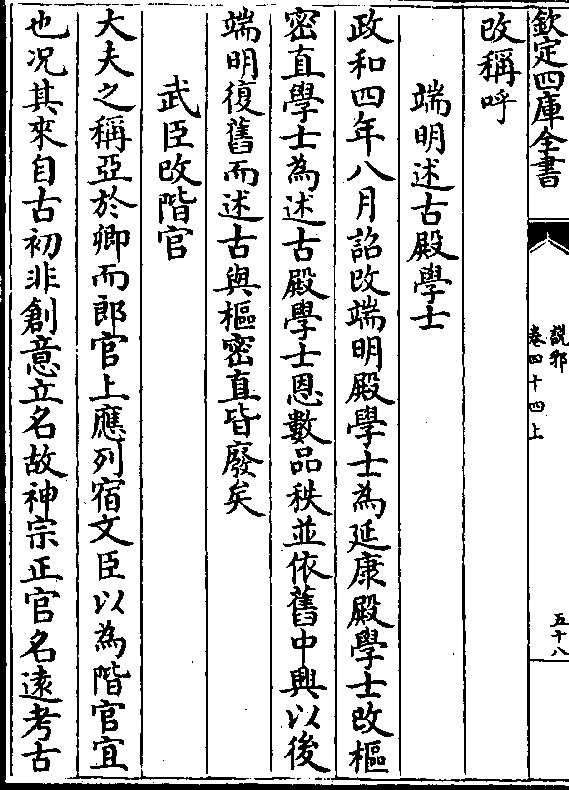 欽定四庫全書
說郛
卷四十四上
五十八
改稱呼
端明述古殿學士
政和四年八月詔改端明殿學士為延康殿學士改樞
密直學士為述古殿學士恩數品秩並依舊中興以後
端明復舊而述古與樞密直皆廢矣
武臣改階官
大夫之稱亞於卿而郎官上應列宿文臣以為階官宜
也况其來自古初非創意立名故神宗正官名遠考古